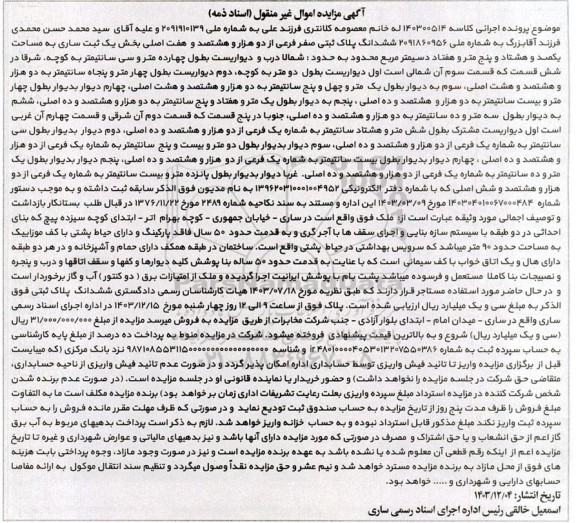 آگهی مزایده اموال غیر منقول (اسناد ذمه)
موضوع پرونده اجرائی کلاسه ۱۴۰۳۰۰۵۱۴ له خانم معصومه کلانتری فرزند علی به شماره ملی ۲۰۹۱۹۱۰۱۳۹ و علیه آقای سید محمد حسن محمدی
فرزند آقابزرگ به شماره ملی ۲۰۹۱۸۶۰۹۵۶ ششدانگ پلاک ثبتی صفر فرعی از دو هزار و هشتصد و هفت اصلی بخش یک ثبت ساری به مساحت
یکصد و هشتاد و پنج متر و هفتاد دسیمتر مربع محدود به حدود : شمالا درب و دیواریست بطول چهارده متر و سی سانتیمتر به کوچه، شرقا در
شش قسمت که قسمت سوم آن شمالی است اول دیواریست بطول دو متر به کوچه، دوم دیواریست بطول چهار متر و پنجاه سانتیمتر به دو هزار
و هشتصد و هشت اصلی، سوم به دیوار بطول یک متر و چهل و پنج سانتیمتر به دو هزار و هشتصد و هشت اصلی، چهارم دیوار بدیوار بطول چهار
متر و بیست سانتیمتر به دو هزار و هشتصد و ده اصلی ، پنجم به دیوار بطول یک متر و هفتاد و پنج سانتیمتر به دو هزار و هشتصد و ده اصلی، ششم
به دیوار بطول سه متر و ده سانتیمتر به دو هزار و هشتصد و ده اصلی، جنوبا در پنج قسمت که قسمت دوم آن شرقی و قسمت چهارم آن غربی
است اول دیواریست مشترک بطول شش متر و هشتاد سانتیمتر به شماره یک فرعی از دو هزار و هشتصد و ده اصلی، دوم دیوار بدیوار بطول سی
سانتیمتر به شماره یک فرعی از دو هزار و هشتصد و ده اصلی، سوم دیوار بدیوار بطول دو متر و بیست و پنج سانتیمتر به شماره یک فرعی از دو هزار
و هشتصد و ده اصلی ، چهارم دیوار بدیوار بطول بیست سانتیمتر به شماره یک فرعی از دو هزار و هشتصد و ده اصلی، پنجم دیوار بدیوار بطول یک
متر و ده سانتیمتر به شماره یک فرعی از دو هزار و هشتصد و ده اصلی. غربا دیوار بدیوار بطول پانزده متر و بیست سانتیمتر به شماره یک فرعی از دو
هزار و هشتصد و شش اصلی که با شماره دفتر الکترونیکی ۱۳۹۶۲۰۳۱۰۰۰۱۰۰۴۹۵۲ به نام مدیون فوق الذکر سابقه ثبت داشته و به موجب دستور
شماره ۱۴۰۳۰۴۰۱۰۰۶۷۰۰۰۴۸۴ مورخ ۱۴۰۳/۰۳/۰۹ این اداره و مستند به سند نکاحیه شماره ۲۴۸۹ مورخ ۱۳۷۶/۱۱/۲۲ در قبال طلب بستانکار بازداشت
و توصیف اجمالی مورد وثیقه عبارت است از: ملک فوق واقع است در ساری - خیابان جمهوری - کوچه بهرام اثر - ابتدای کوچه سیزده پیچ که بنای
احداثی در دو طبقه با سیستم سازه بنایی و اجرای سقف ها با آجر گری و به قدمت حدود ۵۰ سال فاقد پارکینگ و دارای حیاط پشتی با کف موزاییک
به مساحت حدود ۹۰ متر میباشد که سرویس بهداشتی در حیاط پشتی واقع است. ساختمان در طبقه همکف دارای حمام و آشپزخانه و در هر دو طبقه
دارای هال و یک اتاق خواب با کف سیمانی است که با عنایت به قدمت حدود ۵۰ ساله بنا پوشش کلیه دیوارها و کفها و سقف اتاقها و درب و پنجره
و نصبیجات بنا کاملا مستعمل و فرسوده میباشد پشت بام با پوشش ایرانیت اجرا گردیده و ملک از امتیازات برق ( دو کنتور ) آب و گاز برخوردار است
و در حال حاضر مورد استفاده مستاجر قرار دارند که طبق نظریه مورخ ۱۴۰۳/۰۷/۱۸ هیات کارشناسان رسمی دادگستری ششدانگ پلاک ثبتی فوق
الذکر به مبلغ سی و یک میلیارد ریال ارزیابی شده است. پلاک فوق از ساعت ۹ الی ۱۲ روز چهار شنبه مورخ ۱۴۰۳/۱۲/۱۵ در اداره اجرای اسناد رسمی
ساری واقع در ساری - میدان امام - ابتدای بلوار آزادی - جنب شرکت مخابرات از طریق مزایده به فروش میرسد مزایده از مبلغ ۳۱/۰۰۰/۰۰۰/۰۰۰ ریال
(سی و یک میلیارد ریال) شروع و به بالاترین قیمت پیشنهادی فروخته میشود. شرکت در مزایده منوط به پرداخت ده درصد از مبلغ پایه کارشناسی
به حساب سپرده ثبت به شماره
قبل از برگزاری مزایده واریز تا تائید فیش واریزی توسط حسابداری اداره امکان پذیر گردد و در صورت عدم تائید فیش واریزی از ناحیه حسابداری،
متقاضی حق شرکت در جلسه مزایده را نخواهد داشت) و حضور خریدار یا نماینده قانونی او در جلسه مزایده است. (در صورت عدم برنده شدن
شخص شرکت کننده در مزایده استرداد مبلغ سپرده واریزی بعلت رعایت تشریفات اداری زمان بر خواهد بود) برنده مزایده مکلف است ما به التفاوت
مبلغ فروش را ظرف مدت پنج روز از تاریخ مزایده به حساب صندوق ثبت تودیع نماید و در صورتی که ظرف مهلت مقرر مانده فروش را به حساب
سپرده ثبت واریز نکند مبلغ مذکور قابل استرداد نبوده و به حساب خزانه واریز خواهد شد. لازم به ذکر است پرداخت بدهیهای مربوط به آب برق
گاز اعم از حق انشعاب و یا حق اشتراک و مصرف در صورتی که مورد مزایده دارای آنها باشد و نیز بدهیهای مالیاتی و عوارض شهرداری و غیره تا تاریخ
مزایده اعم از اینکه رقم قطعی آن معلوم شده یا نشده باشد به عهده برنده مزایده است و نیز در صورت وجود مازاد، وجوه پرداختی بابت هزینه
های فوق از محل مازاد به برنده مزایده مسترد خواهد شد و نیم عشر و حق مزایده نقداً وصول میگردد و تنظیم سند انتقال موکول به ارائه مفاصا
حسابهای دارایی و شهرداری و ..... خواهد بود.
تاریخ انتشار: ۱۴۰۳/۱۲/۰۴
اسمعیل خالقی رئیس اداره اجرای اسناد رسمی ساری